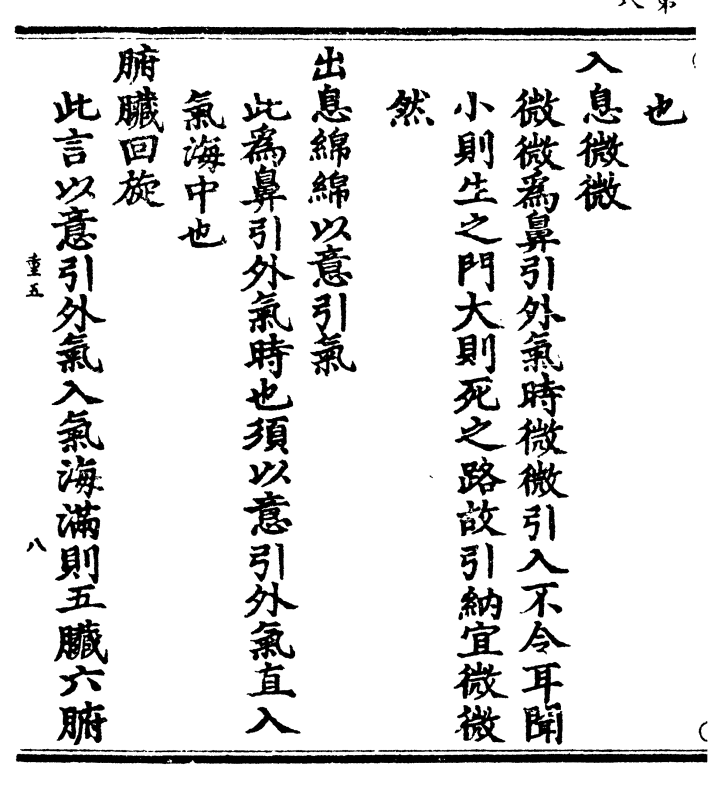 也
入息微微
微微爲鼻引外氣時微微引入不令耳聞
小則生之門大則死之路故引納宜微微
然
出息綿綿以意引氣
此爲鼻引外氣時也須以意引外氣直入
氣海中也
腑臟回旋
此言以意引外氣入氣海滿則五臟六腑
重五
八